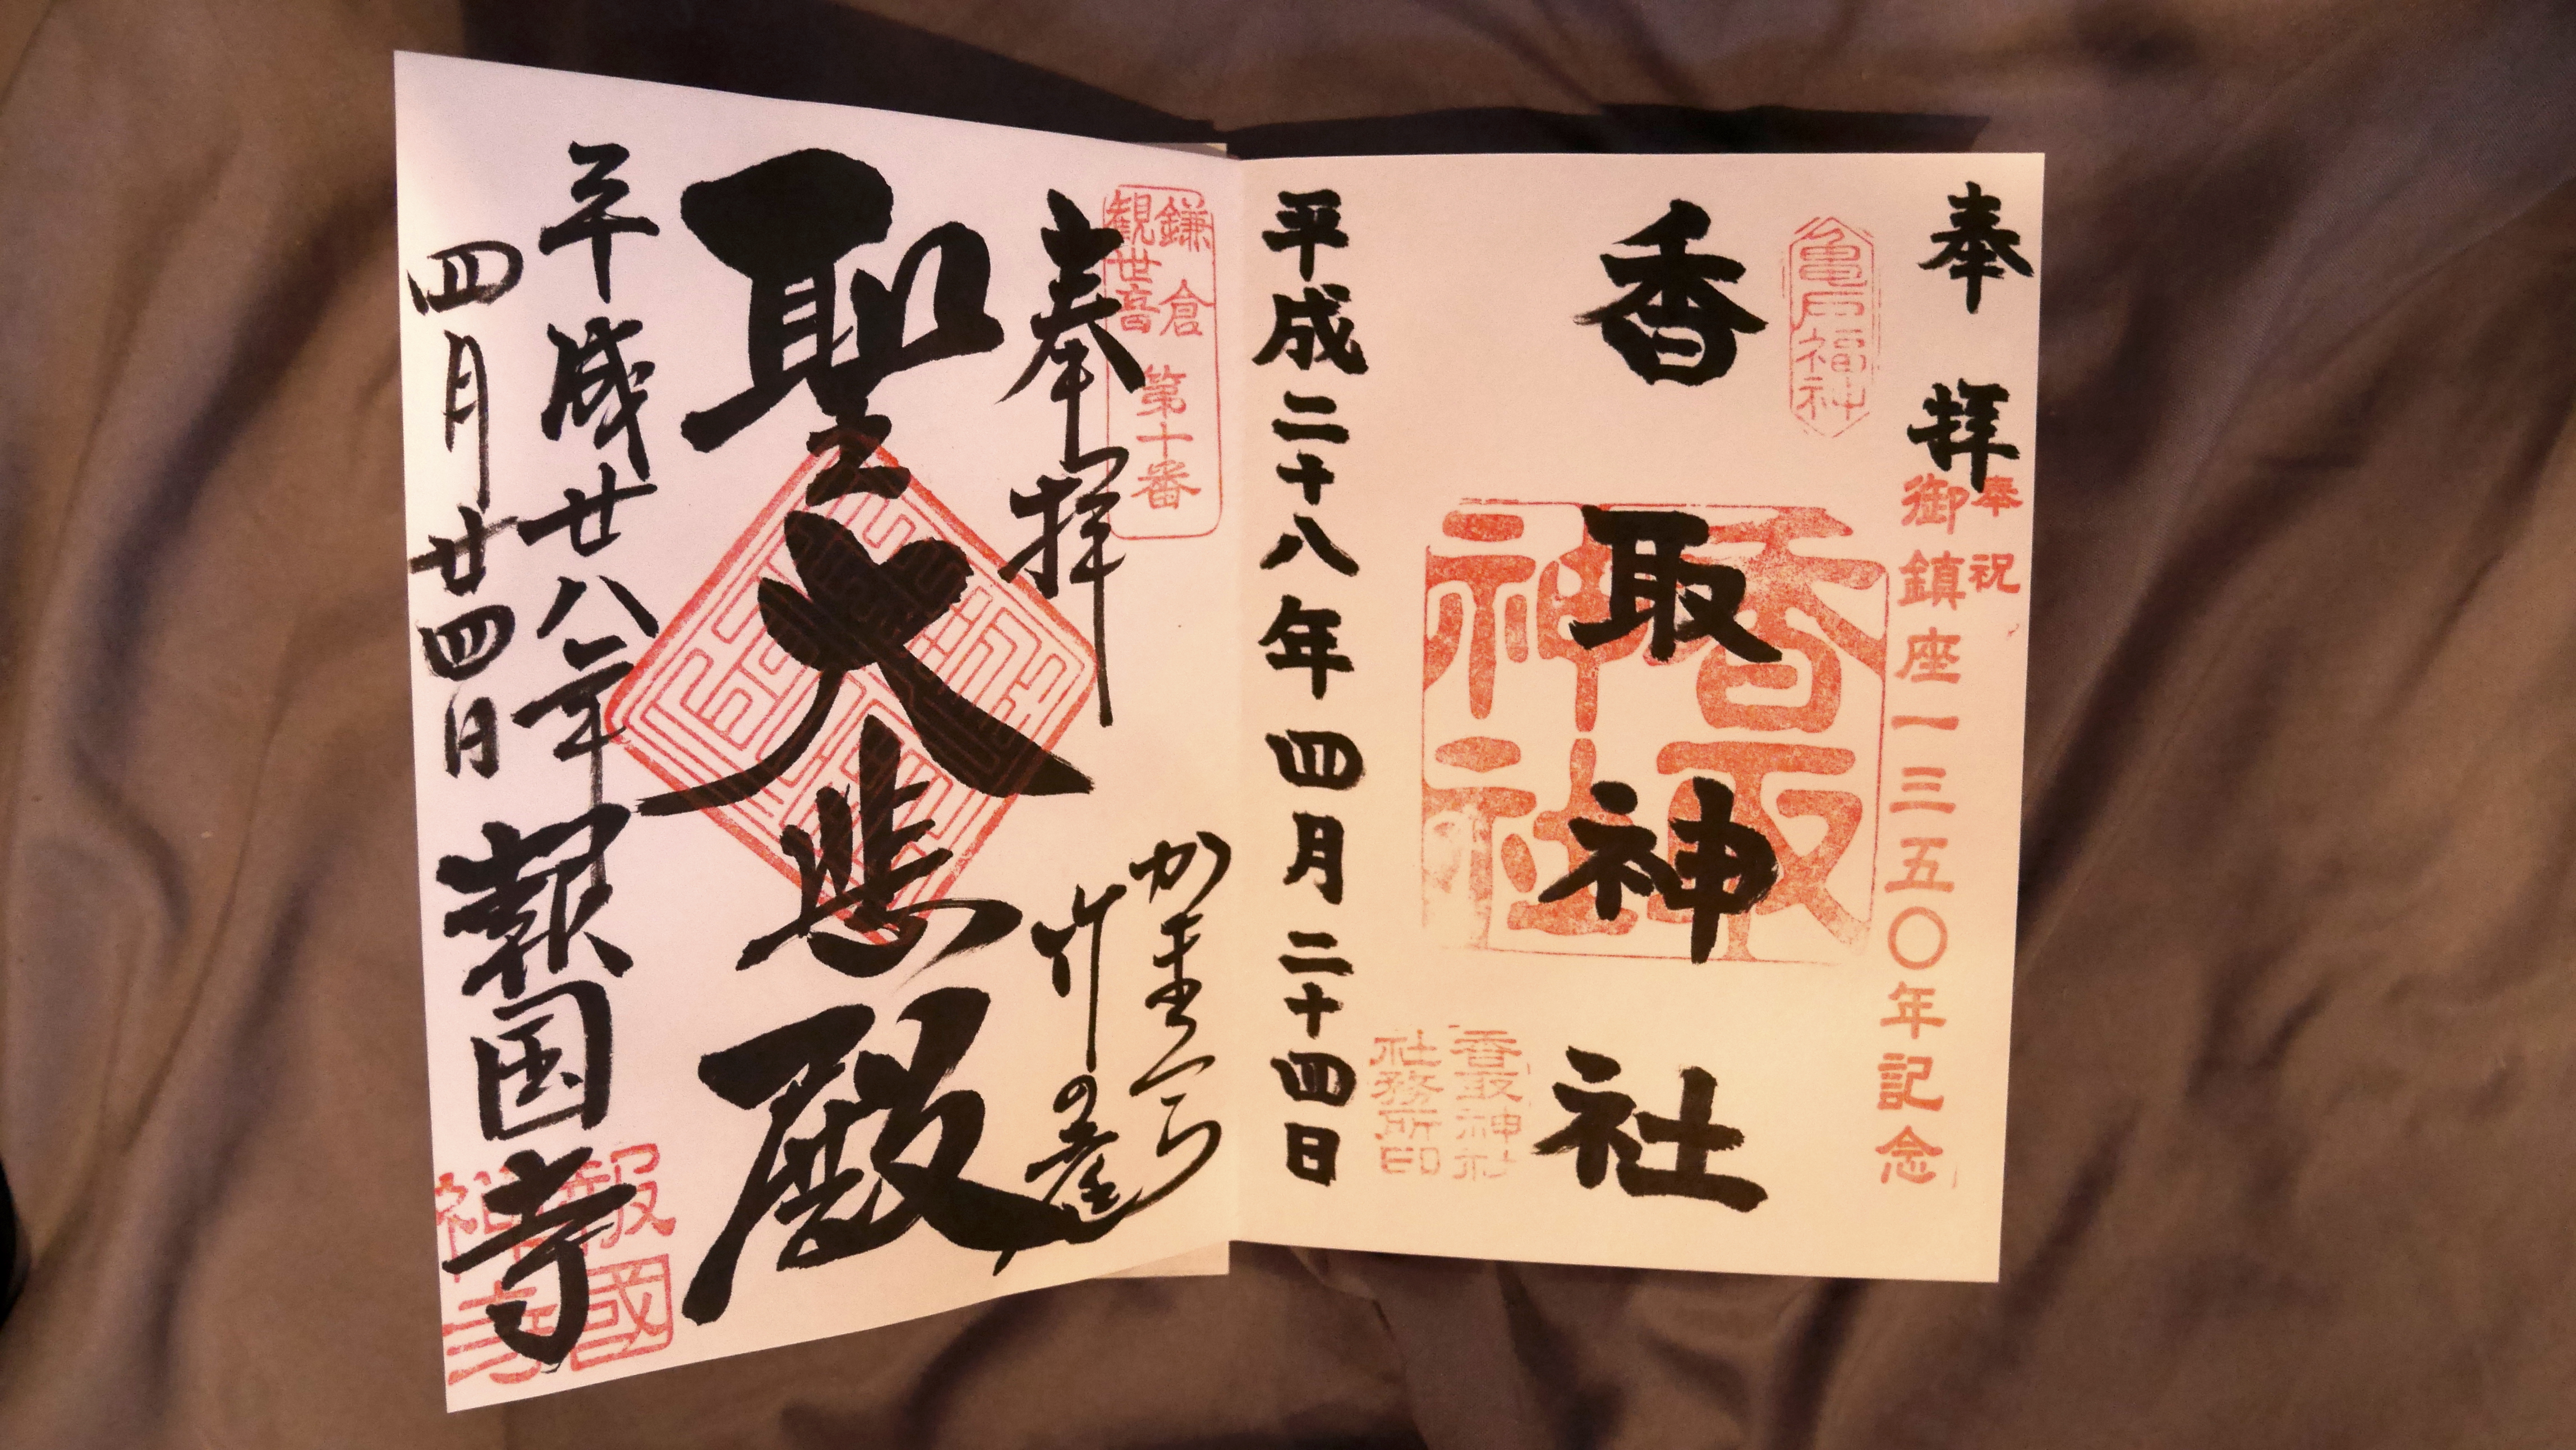 奉拝
奉祝
御鎮座一三五〇年記念
亀戸福神
香取神社
香取神社
香取神社
社務所印
平成二十八年四月二十四日
鎌倉
観世音
第十番
奉拝
かまくら
竹の庭
聖大悲殿
平成廿八年
四月廿四日
報国寺
報國
禅寺